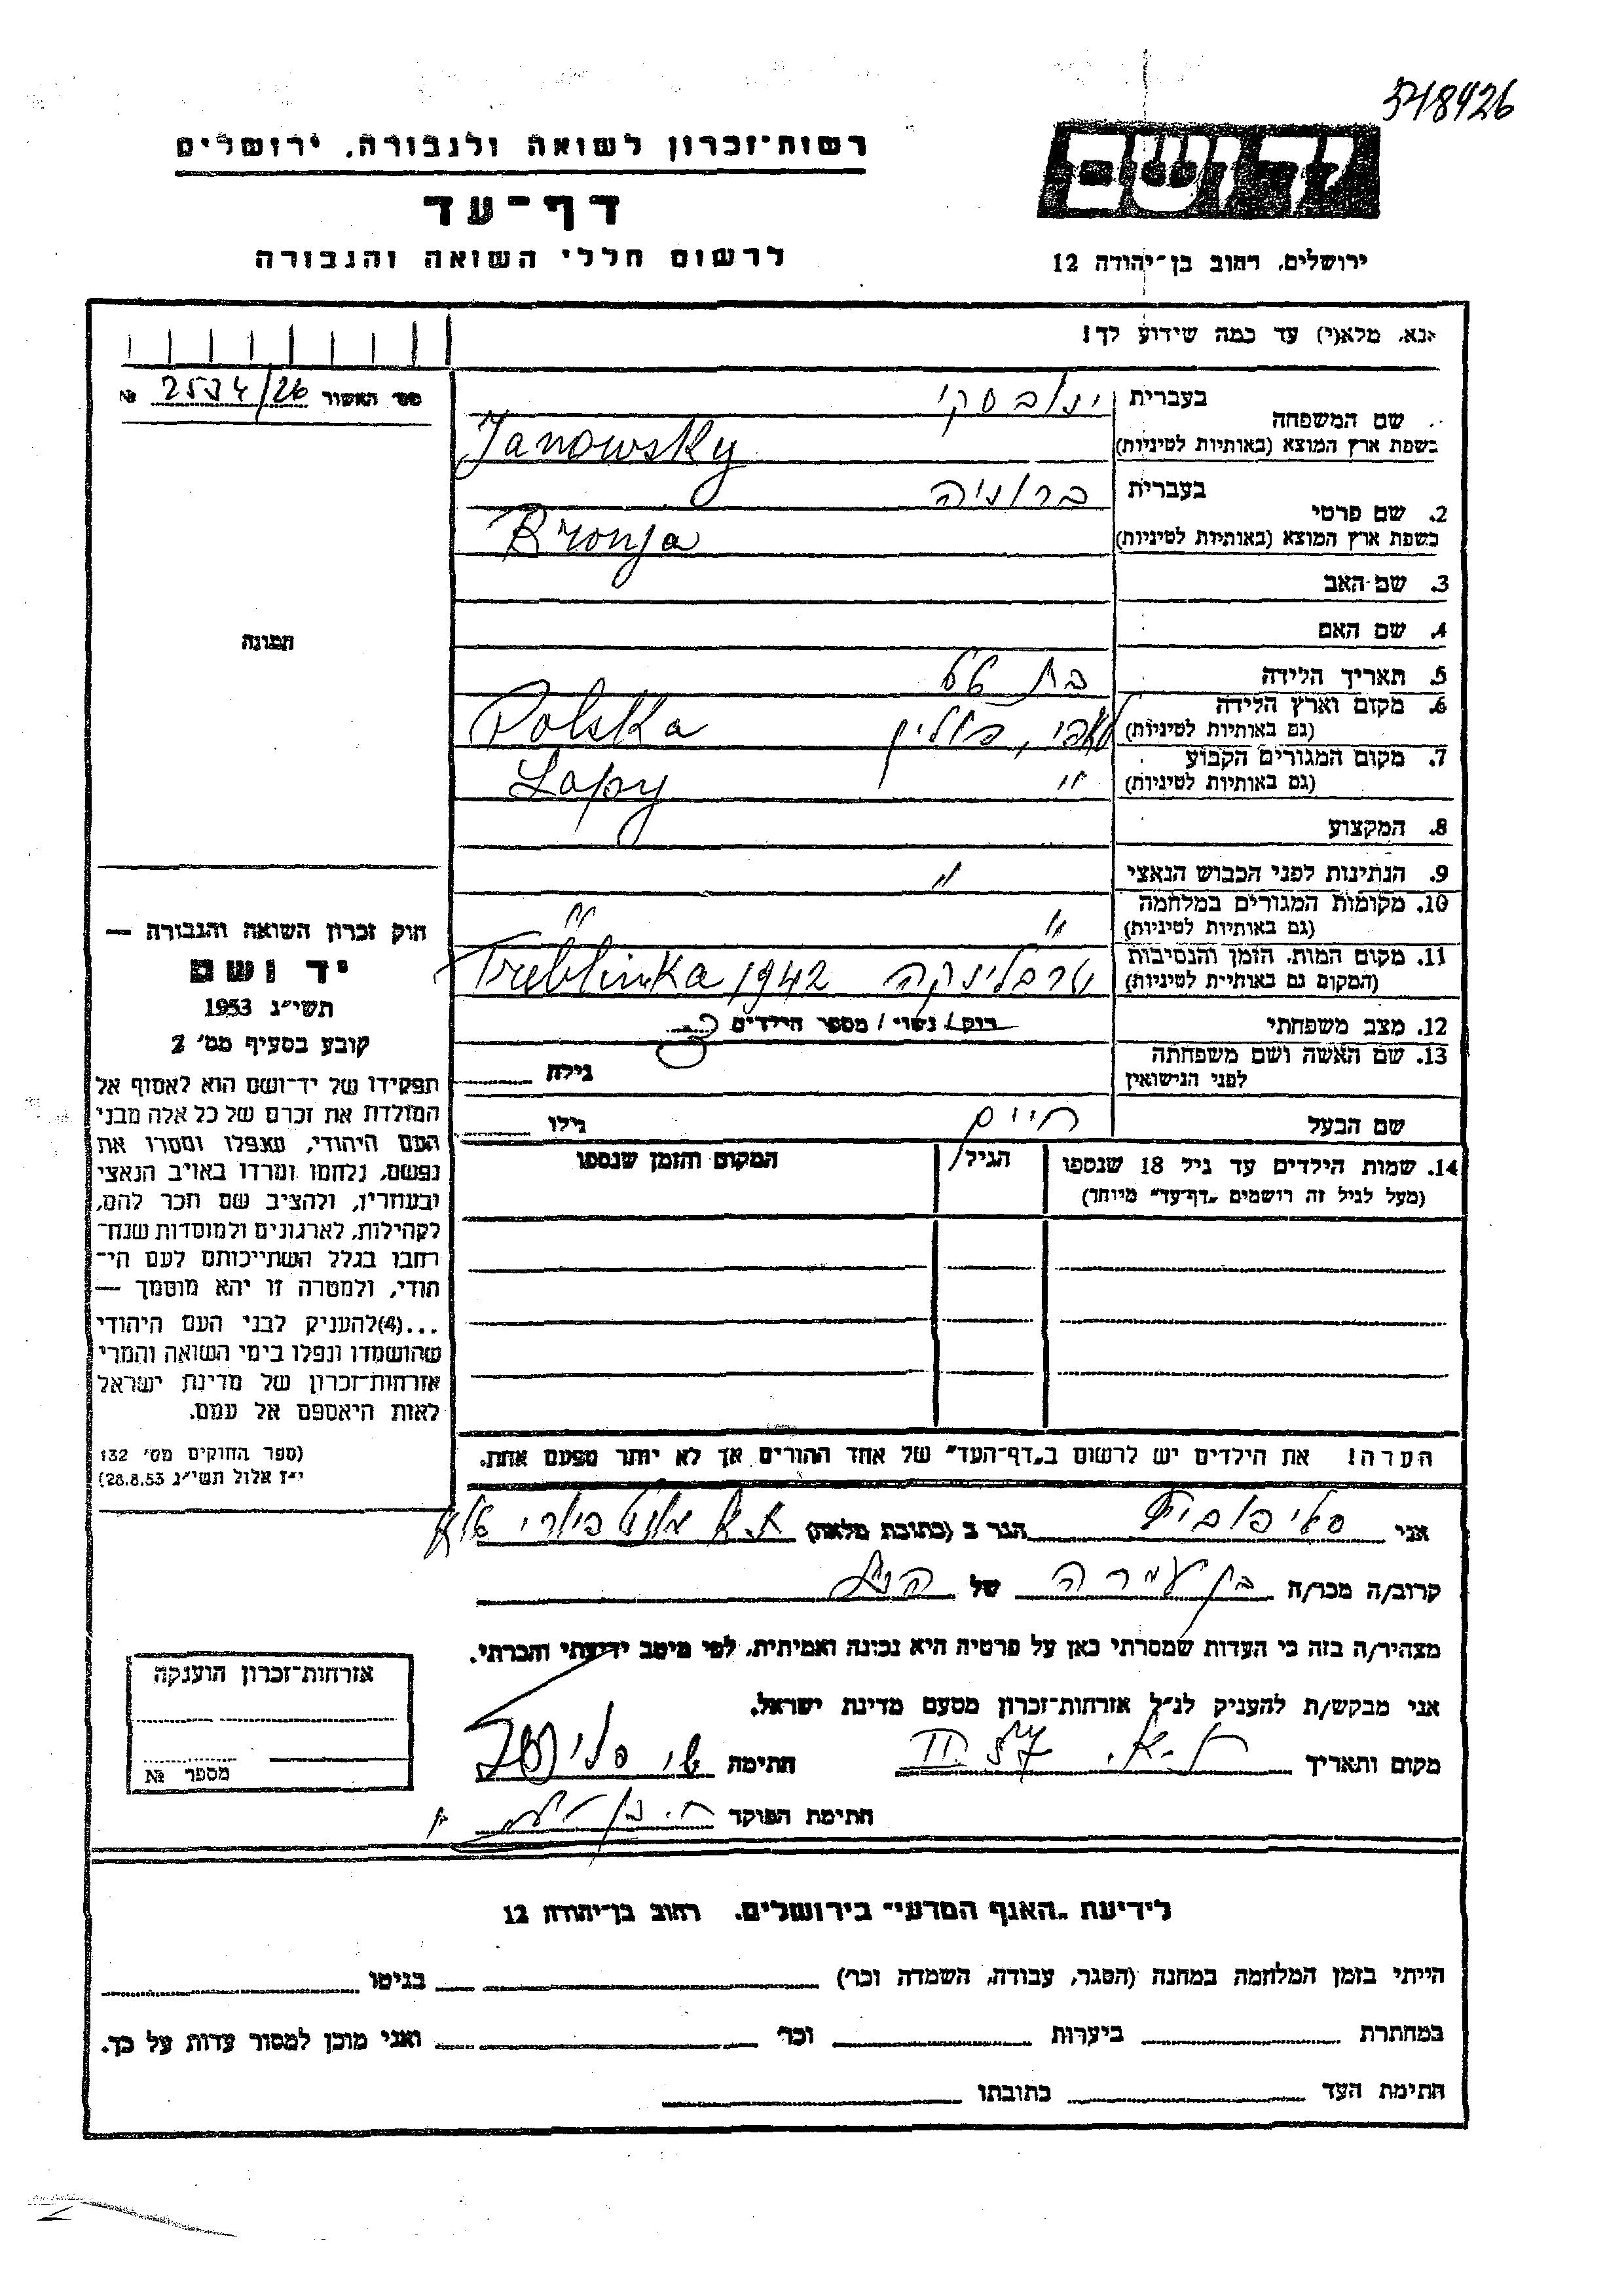 518426
רשות־זכרון לשואה ולגבורה, ירושלים
דף־עד
לרשום חללי השואה והגבורה
יד ושם
ירושלים, רחוב בן־יהודה 12
נא, מלא(י) עד כמה שידוע לך!
מס׳ האשור № 2534/26
בעברית ינובסקי
שם המשפחה
בשפת ארץ המוצא (באותיות לטיניות) Janowsky
בעברית ברוניה
2. שם פרטי
בשפת ארץ המוצא (באותיות לטיניות) Bronja
3. שם האב
4. שם האם
תמונה
5. תאריך הלידה בת
6. מקום וארץ הלידה
(גם באותיות לטיניות) לאפי, פולין Polska
7. מקום המגורים הקבוע
(גם באותיות לטיניות) " Lapy
8. המקצוע
9. הנתינות לפני הכבוש הנאצי "
10. מקומות המגורים במלחמה
(גם באותיות לטיניות) " "
11. מקום המות, הזמן והנסיבות
(המקום גם באותיית לטיניות) טרבלינקה Treblinka 1942
12. מצב משפחתי רוק / נשוי / מספר הילדים
13. שם האשה ושם משפחתה
לפני הנישואין גילה
שם הבעל חיים גילו
14. שמות הילדים עד גיל 18 שנספו הגיל המקום והזמן שנספו
(מעל לגיל זה רושמים „דף־עד״ מיוחד)
הערה! את הילדים יש לרשום ב„דף־העד״ של אחד ההורים אך לא יותר מפעם אחת.
חוק זכרון השואה והגבורה —
יד ושם
תשי״ג 1953
קובע בסעיף מס׳ 2
תפקידו של יד־ושם הוא לאסוף אל
המולדת את זכרם של כל אלה מבני
העם היהודי, שנפלו ומסרו את
נפשם, נלחמו ומרדו באויב הנאצי
ובעוזריו, ולהציב שם וזכר להם,
לקהילות, לארגונים ולמוסדות שנח־
רבו בגלל השתייכותם לעם הי־
הודי, ולמטרה זו יהא מוסמך —
...(4)להעניק לבני העם היהודי
שהושמדו ונפלו בימי השואה והמרי
אזרחות־זכרון של מדינת ישראל
לאות היאספם אל עמם.
(ספר החוקים מס׳ 132
י״ז אלול תשי״ג 28.8.53)
אני הגר ב (כתובת מלאה)
קרוב/ה מכר/ה של
מצהיר/ה בזה כי העדות שמסרתי כאן על פרטיה היא נכונה ואמיתית, לפי מיטב ידיעתי והכרתי.
אני מבקש/ת להעניק לנ״ל אזרחות־זכרון מטעם מדינת ישראל.
מקום ותאריך ת.א. 57 II חתימה
חתימת הפוקד
אזרחות־זכרון הוענקה
מספר №
לידיעת „האגף המדעי״ בירושלים, רחוב בן־יהודה 12
הייתי בזמן המלחמה במחנה (הסגר, עבודה, השמדה וכו׳) בגיטו
במחתרת ביערות וכו׳ ואני מוכן למסור עדות על כך.
חתימת העד כתובתו